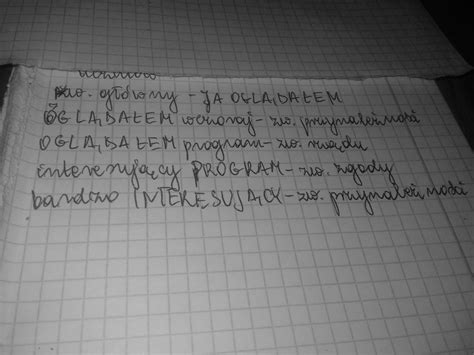 zw. główny - JA OGLĄDAŁEM
OGLĄDAŁEM wczoraj - zw. przynależność
OGLĄDAŁEM program - zw. rządu
interesujący PROGRAM - zw. zgody
bardzo INTERESUJĄCY - zw. przynależność